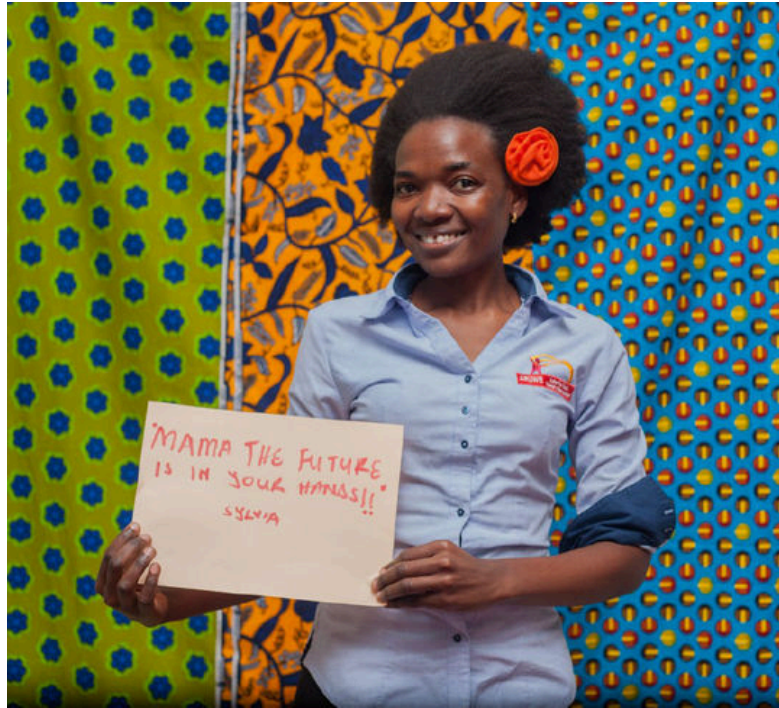 "MAMA THE FUTURE
IS IN YOUR HANDS!!"
SYLVIA